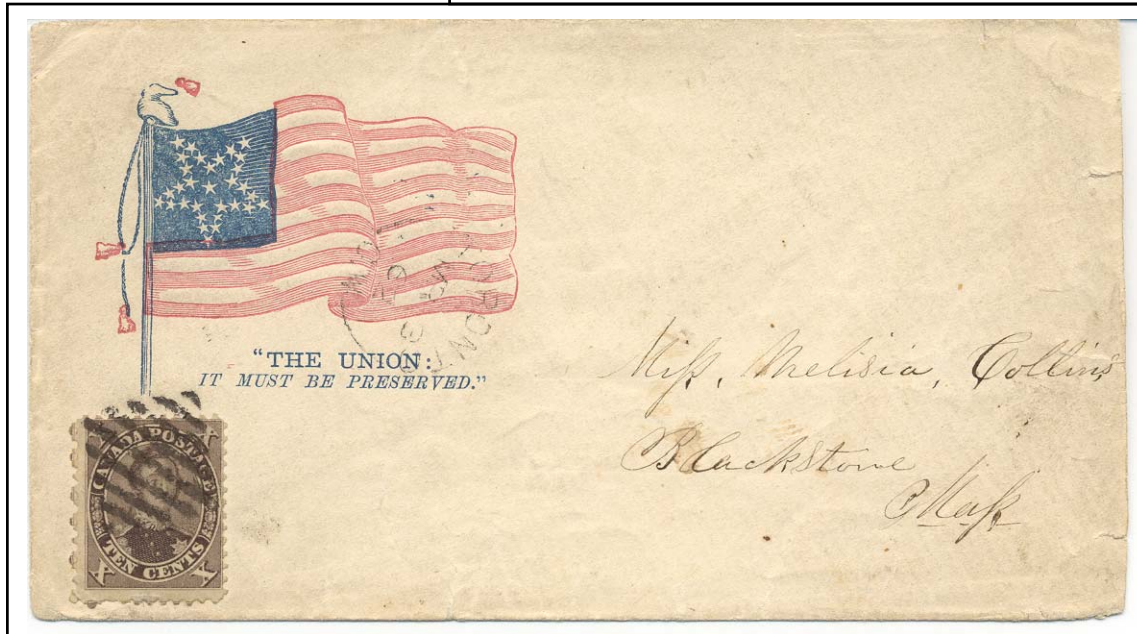 "THE UNION:
IT MUST BE PRESERVED."
CANADA POSTAGE
TEN CENTS
X X
X X
Miss, Melisia, Collins
Blackstone
Mass